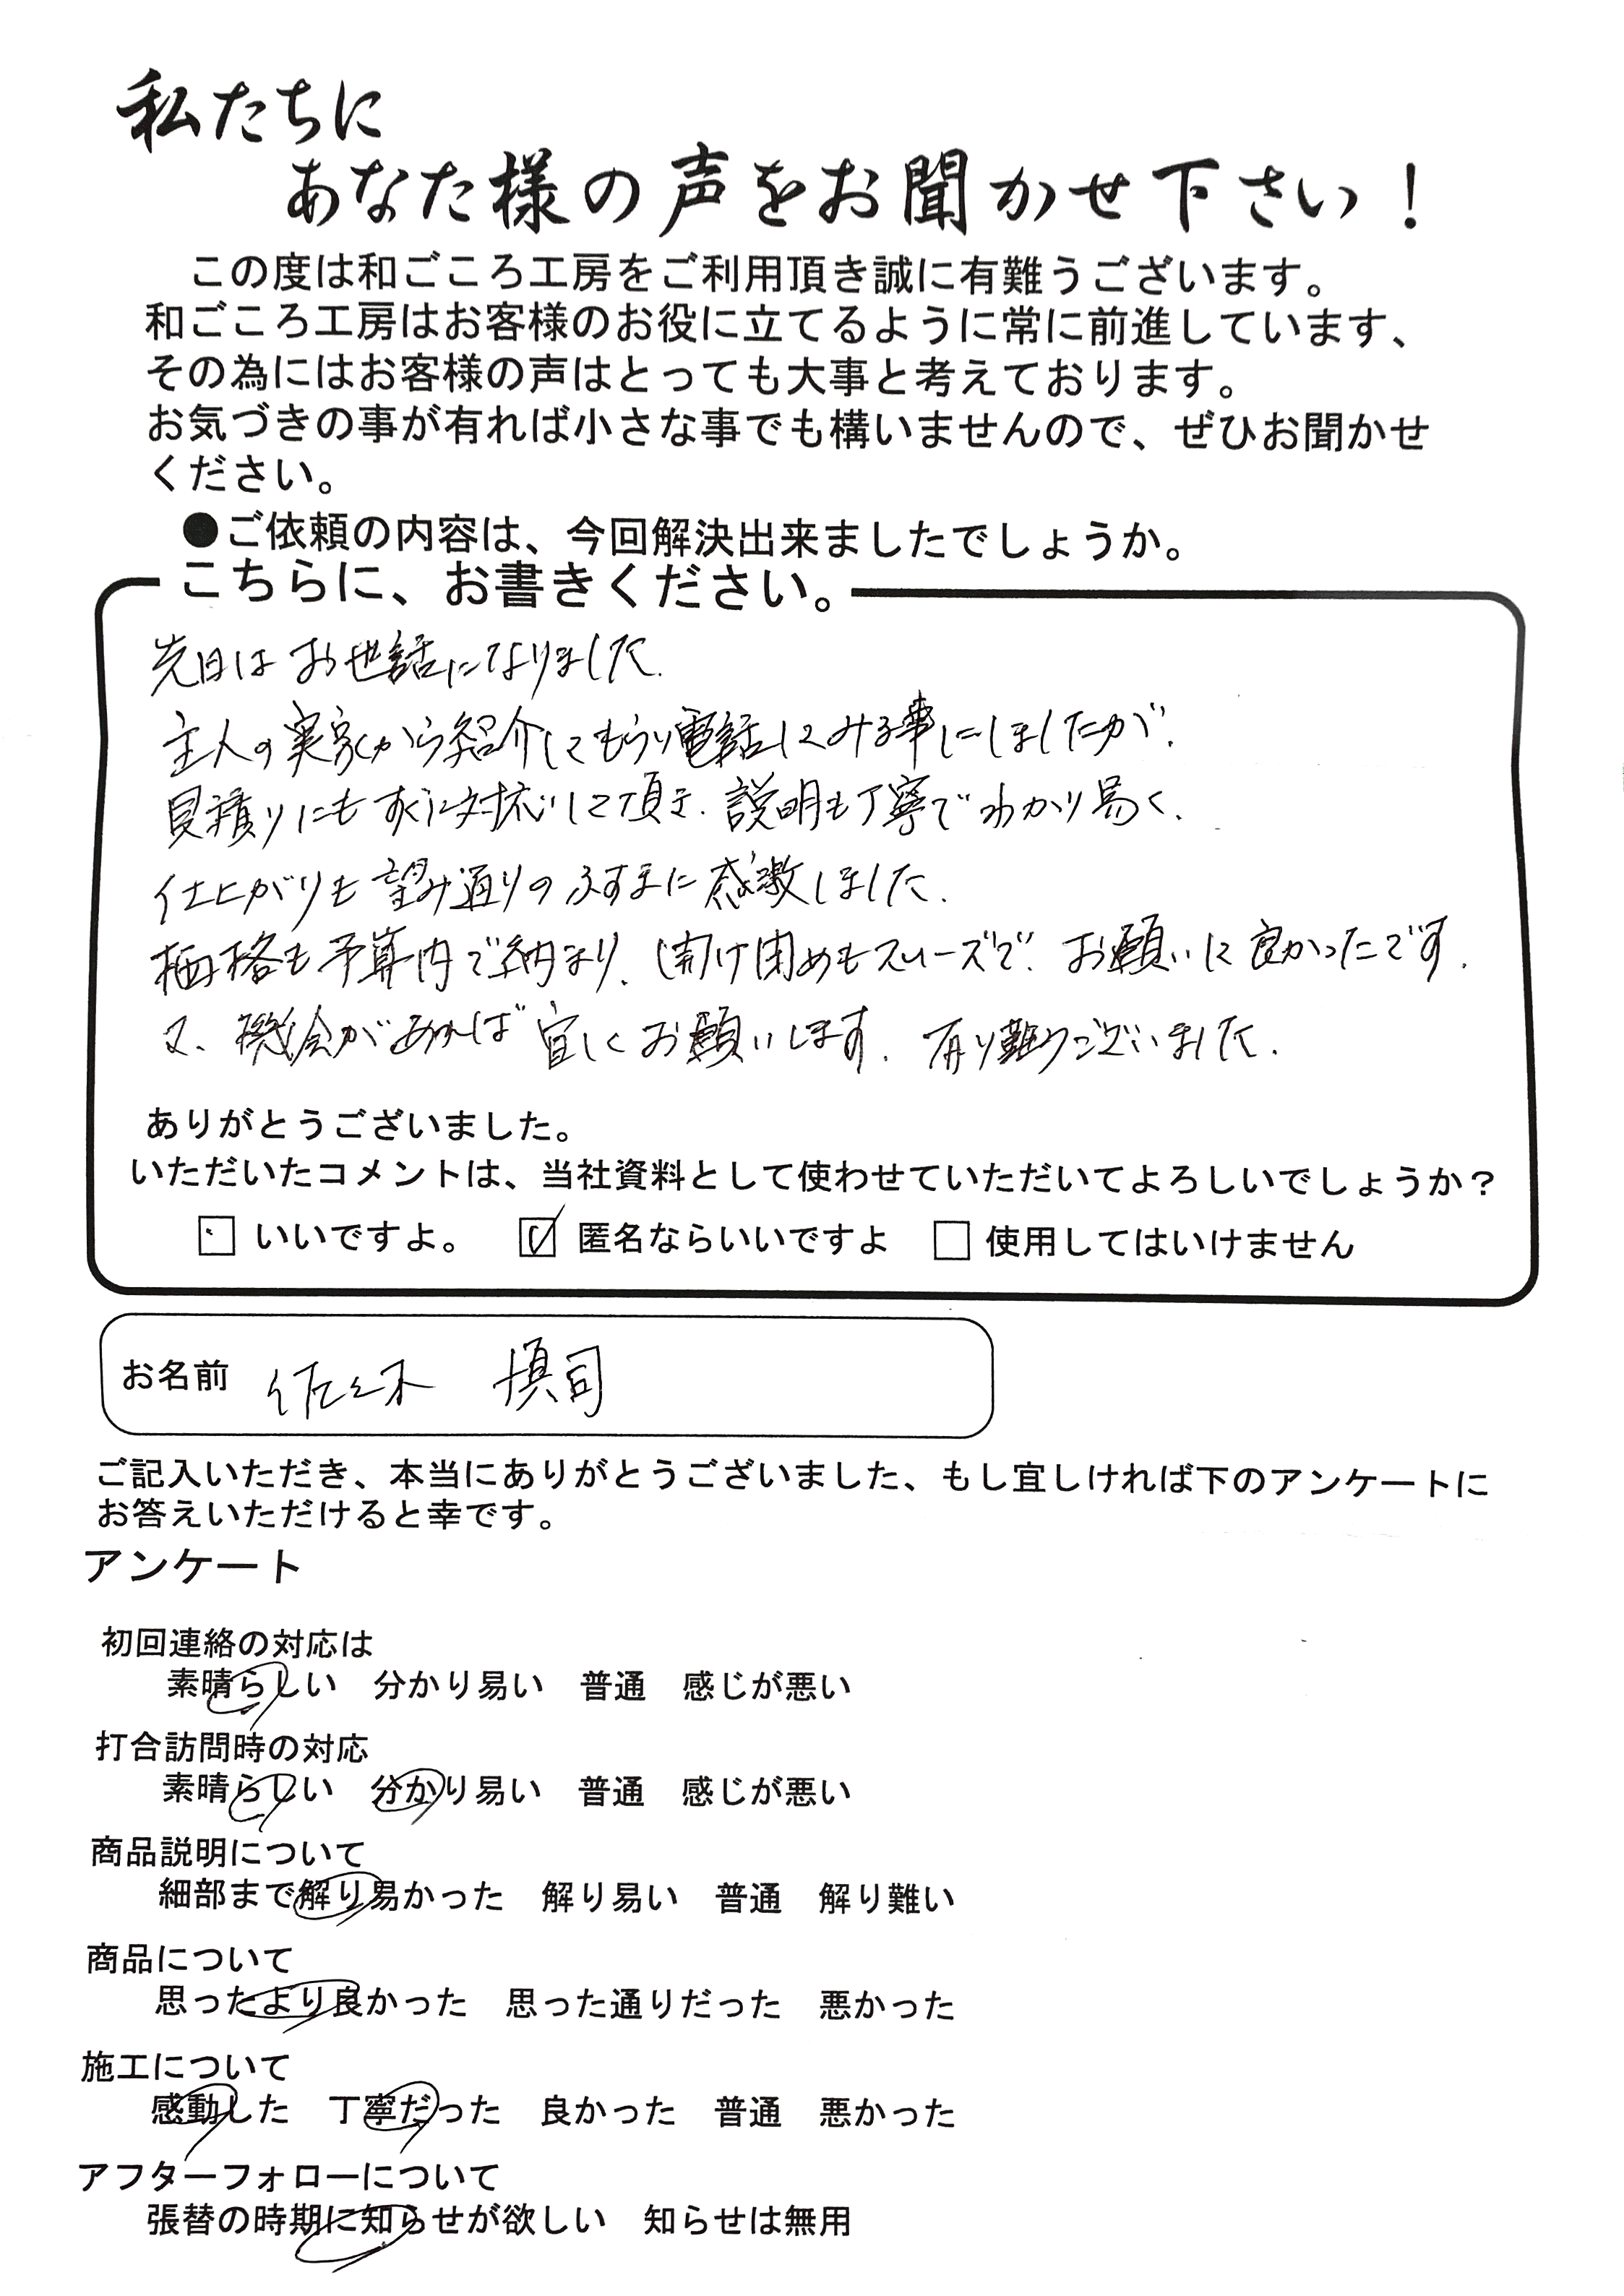 私たちに
あなた様の声をお聞かせ下さい！
この度は和ごころ工房をご利用頂き誠に有難うございます。
和ごころ工房はお客様のお役に立てるように常に前進しています、
その為にはお客様の声はとっても大事と考えております。
お気づきの事が有れば小さな事でも構いませんので、ぜひお聞かせ
ください。
●ご依頼の内容は、今回解決出来ましたでしょうか。
こちらに、お書きください。
先日はお世話になりました.
主人の実家から紹介してもらい電話してみる事にしましたが.
見積りにもすぐに対応して頂き.説明も丁寧でわかり易く.
仕上がりも望み通りのふすまに感激しました.
価格も予算内で納まり.開け閉めもスムーズで.お願いして良かったです.
又、機会があれば宜しくお願いします.有り難うございました.
ありがとうございました。
いただいたコメントは、当社資料として使わせていただいてよろしいでしょうか？
□ いいですよ。 ☑ 匿名ならいいですよ □ 使用してはいけません
お名前 佐々木 慎司
ご記入いただき、本当にありがとうございました、もし宜しければ下のアンケートに
お答えいただけると幸です。
アンケート
初回連絡の対応は
素晴らしい 分かり易い 普通 感じが悪い
打合訪問時の対応
素晴らしい 分かり易い 普通 感じが悪い
商品説明について
細部まで解り易かった 解り易い 普通 解り難い
商品について
思ったより良かった 思った通りだった 悪かった
施工について
感動した 丁寧だった 良かった 普通 悪かった
アフターフォローについて
張替の時期に知らせが欲しい 知らせは無用